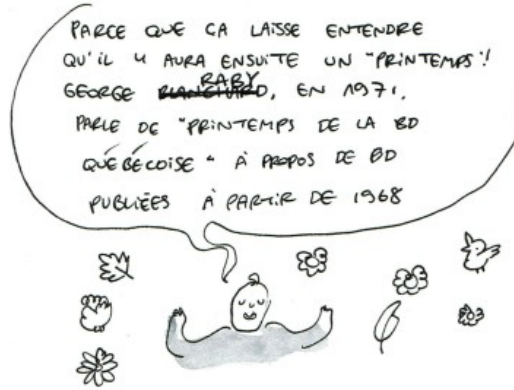 PARCE QUE ÇA LAISSE ENTENDRE
QU'IL Y AURA ENSUITE UN "PRINTEMPS"!
GEORGE RABY, EN 1971,
PARLE DE "PRINTEMPS DE LA BD
QUÉBÉCOISE" À PROPOS DE BD
PUBLIÉES À PARTIR DE 1968